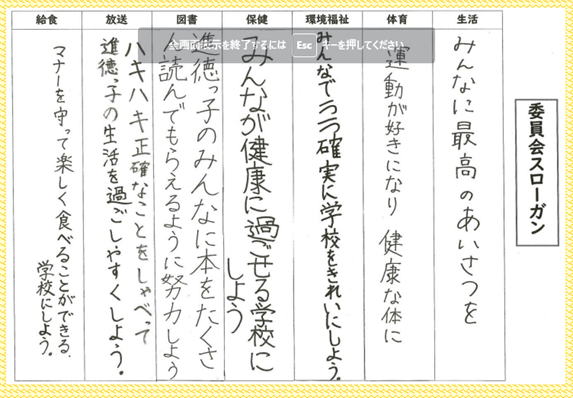 委員会スローガン
生活
みんなに最高のあいさつを
体育
運動が好きになり 健康な体に
環境福祉
みんなで 確実に学校をきれいにしよう。
保健
みんなが健康に過ごせる学校に
しよう
図書
進徳っ子のみんなに本をたくさ
ん読んでもらえるように努力しよう
放送
ハキハキ正確なことをしゃべって
進徳っ子の生活を過ごしやすくしよう。
給食
マナーを守って楽しく食べることができる
学校にしよう。
全画面表示を終了するには Esc キーを押してください